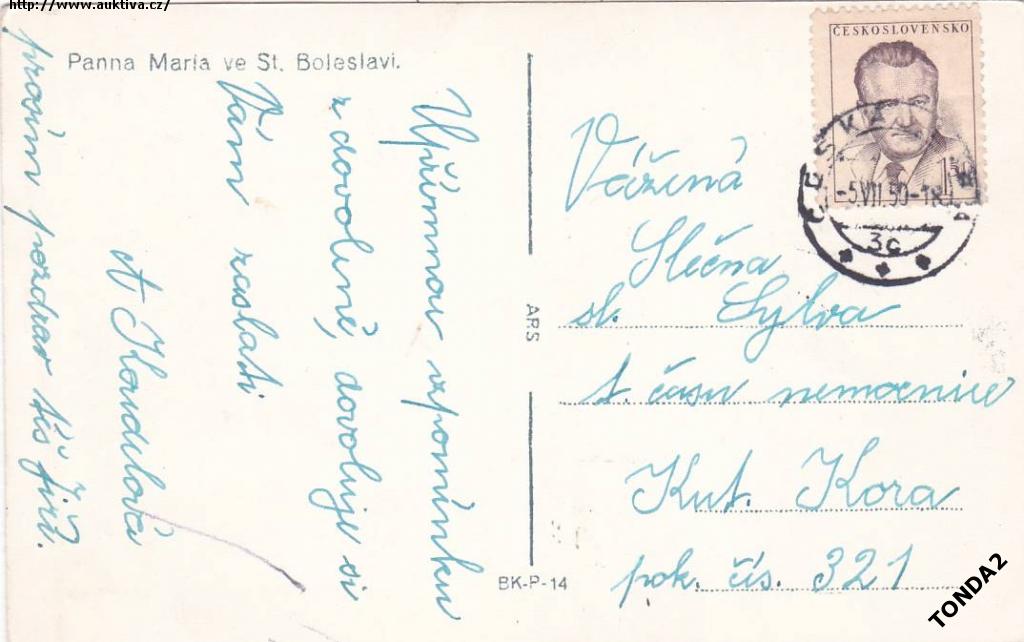 http://www.auktiva.cz/
Panna Maria ve St. Boleslavi.
Upřímnou vzpomínku
z dovolené, dovoluje si
Vám zaslati
A Koudelová
prosím pozdrav též Jiří.
ARS
BK-P-14
ČESKOSLOVENSKO
ČESKÁ
-5.VII.50-18
3c
Vážená
Slečna
sl. Sylva
t. času nemocnice
Kut. Hora
pok. čís. 321
TONDA2